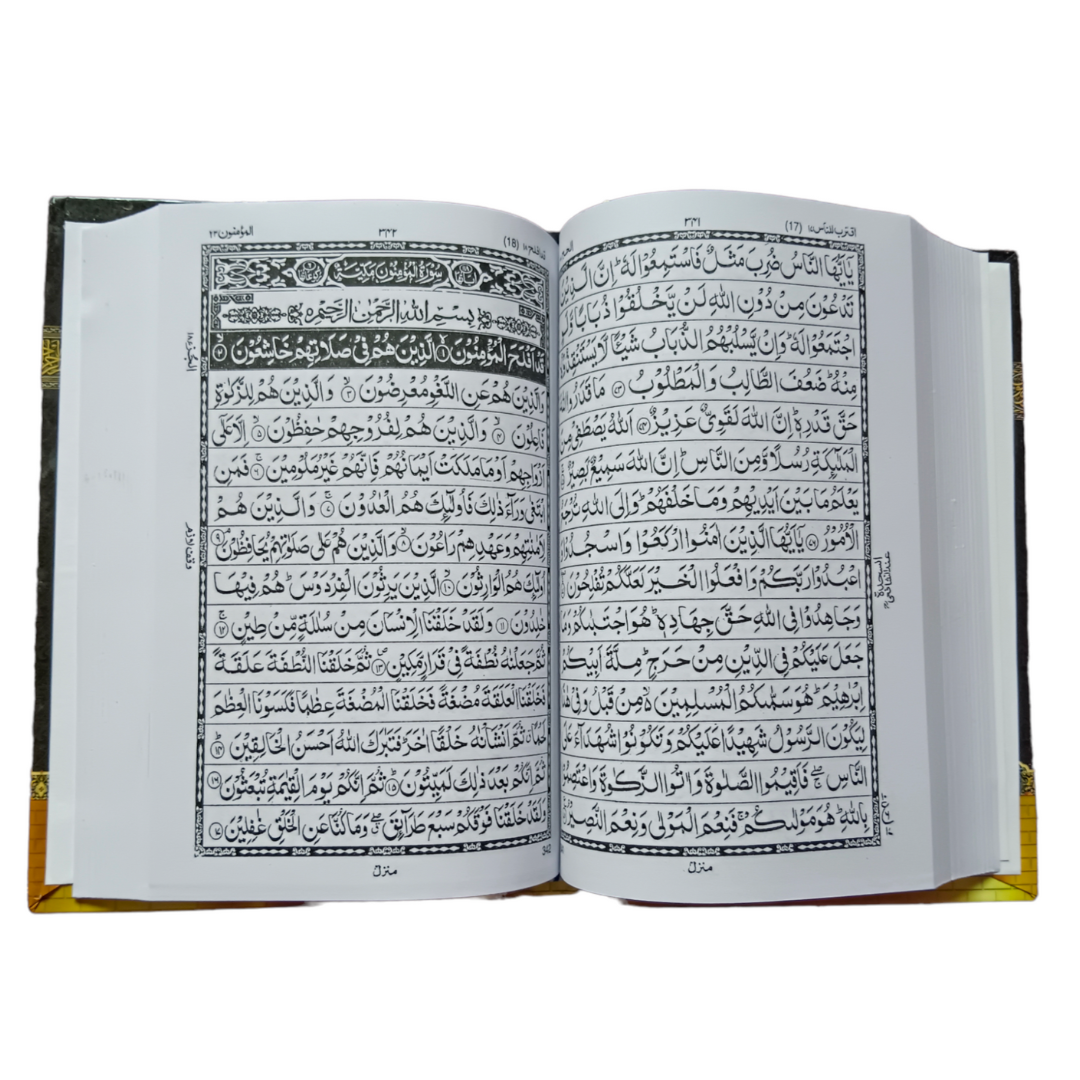 اقترب للناس ١٧ (17)
٣٤١
يٰۤاَيُّهَا النَّاسُ ضُرِبَ مَثَلٌ فَاسْتَمِعُوْا لَهٗ ؕ اِنَّ الَّذِيْنَ
تَدْعُوْنَ مِنْ دُوْنِ اللّٰهِ لَنْ يَّخْلُقُوْا ذُبَابًا وَّلَوِ
اجْتَمَعُوْا لَهٗ ؕ وَاِنْ يَّسْلُبْهُمُ الذُّبَابُ شَيْـًٔا لَّا يَسْتَنْقِذُوْهُ
مِنْهُ ؕ ضَعُفَ الطَّالِبُ وَالْمَطْلُوْبُ ٧٣ مَا قَدَرُوا اللّٰهَ
حَقَّ قَدْرِهٖ ؕ اِنَّ اللّٰهَ لَقَوِىٌّ عَزِيْزٌ ٧٤ اَللّٰهُ يَصْطَفِىْ مِنَ
الْمَلٰٓئِكَةِ رُسُلًا وَّمِنَ النَّاسِ ؕ اِنَّ اللّٰهَ سَمِيْعٌۢ بَصِيْرٌ
يَعْلَمُ مَا بَيْنَ اَيْدِيْهِمْ وَمَا خَلْفَهُمْ ؕ وَاِلَى اللّٰهِ تُرْجَعُ
الْاُمُوْرُ ٧٦ يٰۤاَيُّهَا الَّذِيْنَ اٰمَنُوا ارْكَعُوْا وَاسْجُدُوْا
اعْبُدُوْا رَبَّكُمْ وَافْعَلُوا الْخَيْرَ لَعَلَّكُمْ تُفْلِحُوْنَ
وَجَاهِدُوْا فِى اللّٰهِ حَقَّ جِهَادِهٖ ؕ هُوَ اجْتَبٰىكُمْ وَمَا
جَعَلَ عَلَيْكُمْ فِى الدِّيْنِ مِنْ حَرَجٍ ؕ مِلَّةَ اَبِيْكُمْ
اِبْرٰهِيْمَ ؕ هُوَ سَمّٰىكُمُ الْمُسْلِمِيْنَ ۙ مِنْ قَبْلُ وَفِىْ هٰذَا
لِيَكُوْنَ الرَّسُوْلُ شَهِيْدًا عَلَيْكُمْ وَتَكُوْنُوْا شُهَدَآءَ عَلَى
النَّاسِ ۖ فَاَقِيْمُوا الصَّلٰوةَ وَاٰتُوا الزَّكٰوةَ وَاعْتَصِمُوْا
بِاللّٰهِ ؕ هُوَ مَوْلٰىكُمْ ۚ فَنِعْمَ الْمَوْلٰى وَنِعْمَ النَّصِيْرُ
السجدة
عند الشافعي
منزل
(18)
٣٤٢
المؤمنون ٢٣
سُوْرَةُ الْمُؤْمِنُوْنَ مَكِّيَّةٌ
بِسْمِ اللّٰهِ الرَّحْمٰنِ الرَّحِيْمِ
قَدْ اَفْلَحَ الْمُؤْمِنُوْنَ ١ الَّذِيْنَ هُمْ فِىْ صَلَاتِهِمْ خَاشِعُوْنَ ٢
وَالَّذِيْنَ هُمْ عَنِ اللَّغْوِ مُعْرِضُوْنَ ٣ وَالَّذِيْنَ هُمْ لِلزَّكٰوةِ
فَاعِلُوْنَ ٤ وَالَّذِيْنَ هُمْ لِفُرُوْجِهِمْ حٰفِظُوْنَ ٥ اِلَّا عَلٰٓى
اَزْوَاجِهِمْ اَوْ مَا مَلَكَتْ اَيْمَانُهُمْ فَاِنَّهُمْ غَيْرُ مَلُوْمِيْنَ ٦ فَمَنِ
ابْتَغٰى وَرَآءَ ذٰلِكَ فَاُولٰٓئِكَ هُمُ الْعٰدُوْنَ ٧ وَالَّذِيْنَ هُمْ
لِاَمٰنٰتِهِمْ وَعَهْدِهِمْ رَاعُوْنَ ٨ وَالَّذِيْنَ هُمْ عَلٰى صَلَوٰتِهِمْ يُحَافِظُوْنَ ٩
اُولٰٓئِكَ هُمُ الْوَارِثُوْنَ ١٠ الَّذِيْنَ يَرِثُوْنَ الْفِرْدَوْسَ ؕ هُمْ فِيْهَا
خٰلِدُوْنَ ١١ وَلَقَدْ خَلَقْنَا الْاِنْسَانَ مِنْ سُلٰلَةٍ مِّنْ طِيْنٍ ١٢
ثُمَّ جَعَلْنٰهُ نُطْفَةً فِىْ قَرَارٍ مَّكِيْنٍ ١٣ ثُمَّ خَلَقْنَا النُّطْفَةَ عَلَقَةً
فَخَلَقْنَا الْعَلَقَةَ مُضْغَةً فَخَلَقْنَا الْمُضْغَةَ عِظٰمًا فَكَسَوْنَا الْعِظٰمَ
لَحْمًا ثُمَّ اَنْشَاْنٰهُ خَلْقًا اٰخَرَ ؕ فَتَبٰرَكَ اللّٰهُ اَحْسَنُ الْخَالِقِيْنَ ١٤
ثُمَّ اِنَّكُمْ بَعْدَ ذٰلِكَ لَمَيِّتُوْنَ ١٥ ثُمَّ اِنَّكُمْ يَوْمَ الْقِيٰمَةِ تُبْعَثُوْنَ ١٦
وَلَقَدْ خَلَقْنَا فَوْقَكُمْ سَبْعَ طَرَآئِقَ ۖ وَمَا كُنَّا عَنِ الْخَلْقِ غٰفِلِيْنَ ١٧
منزل